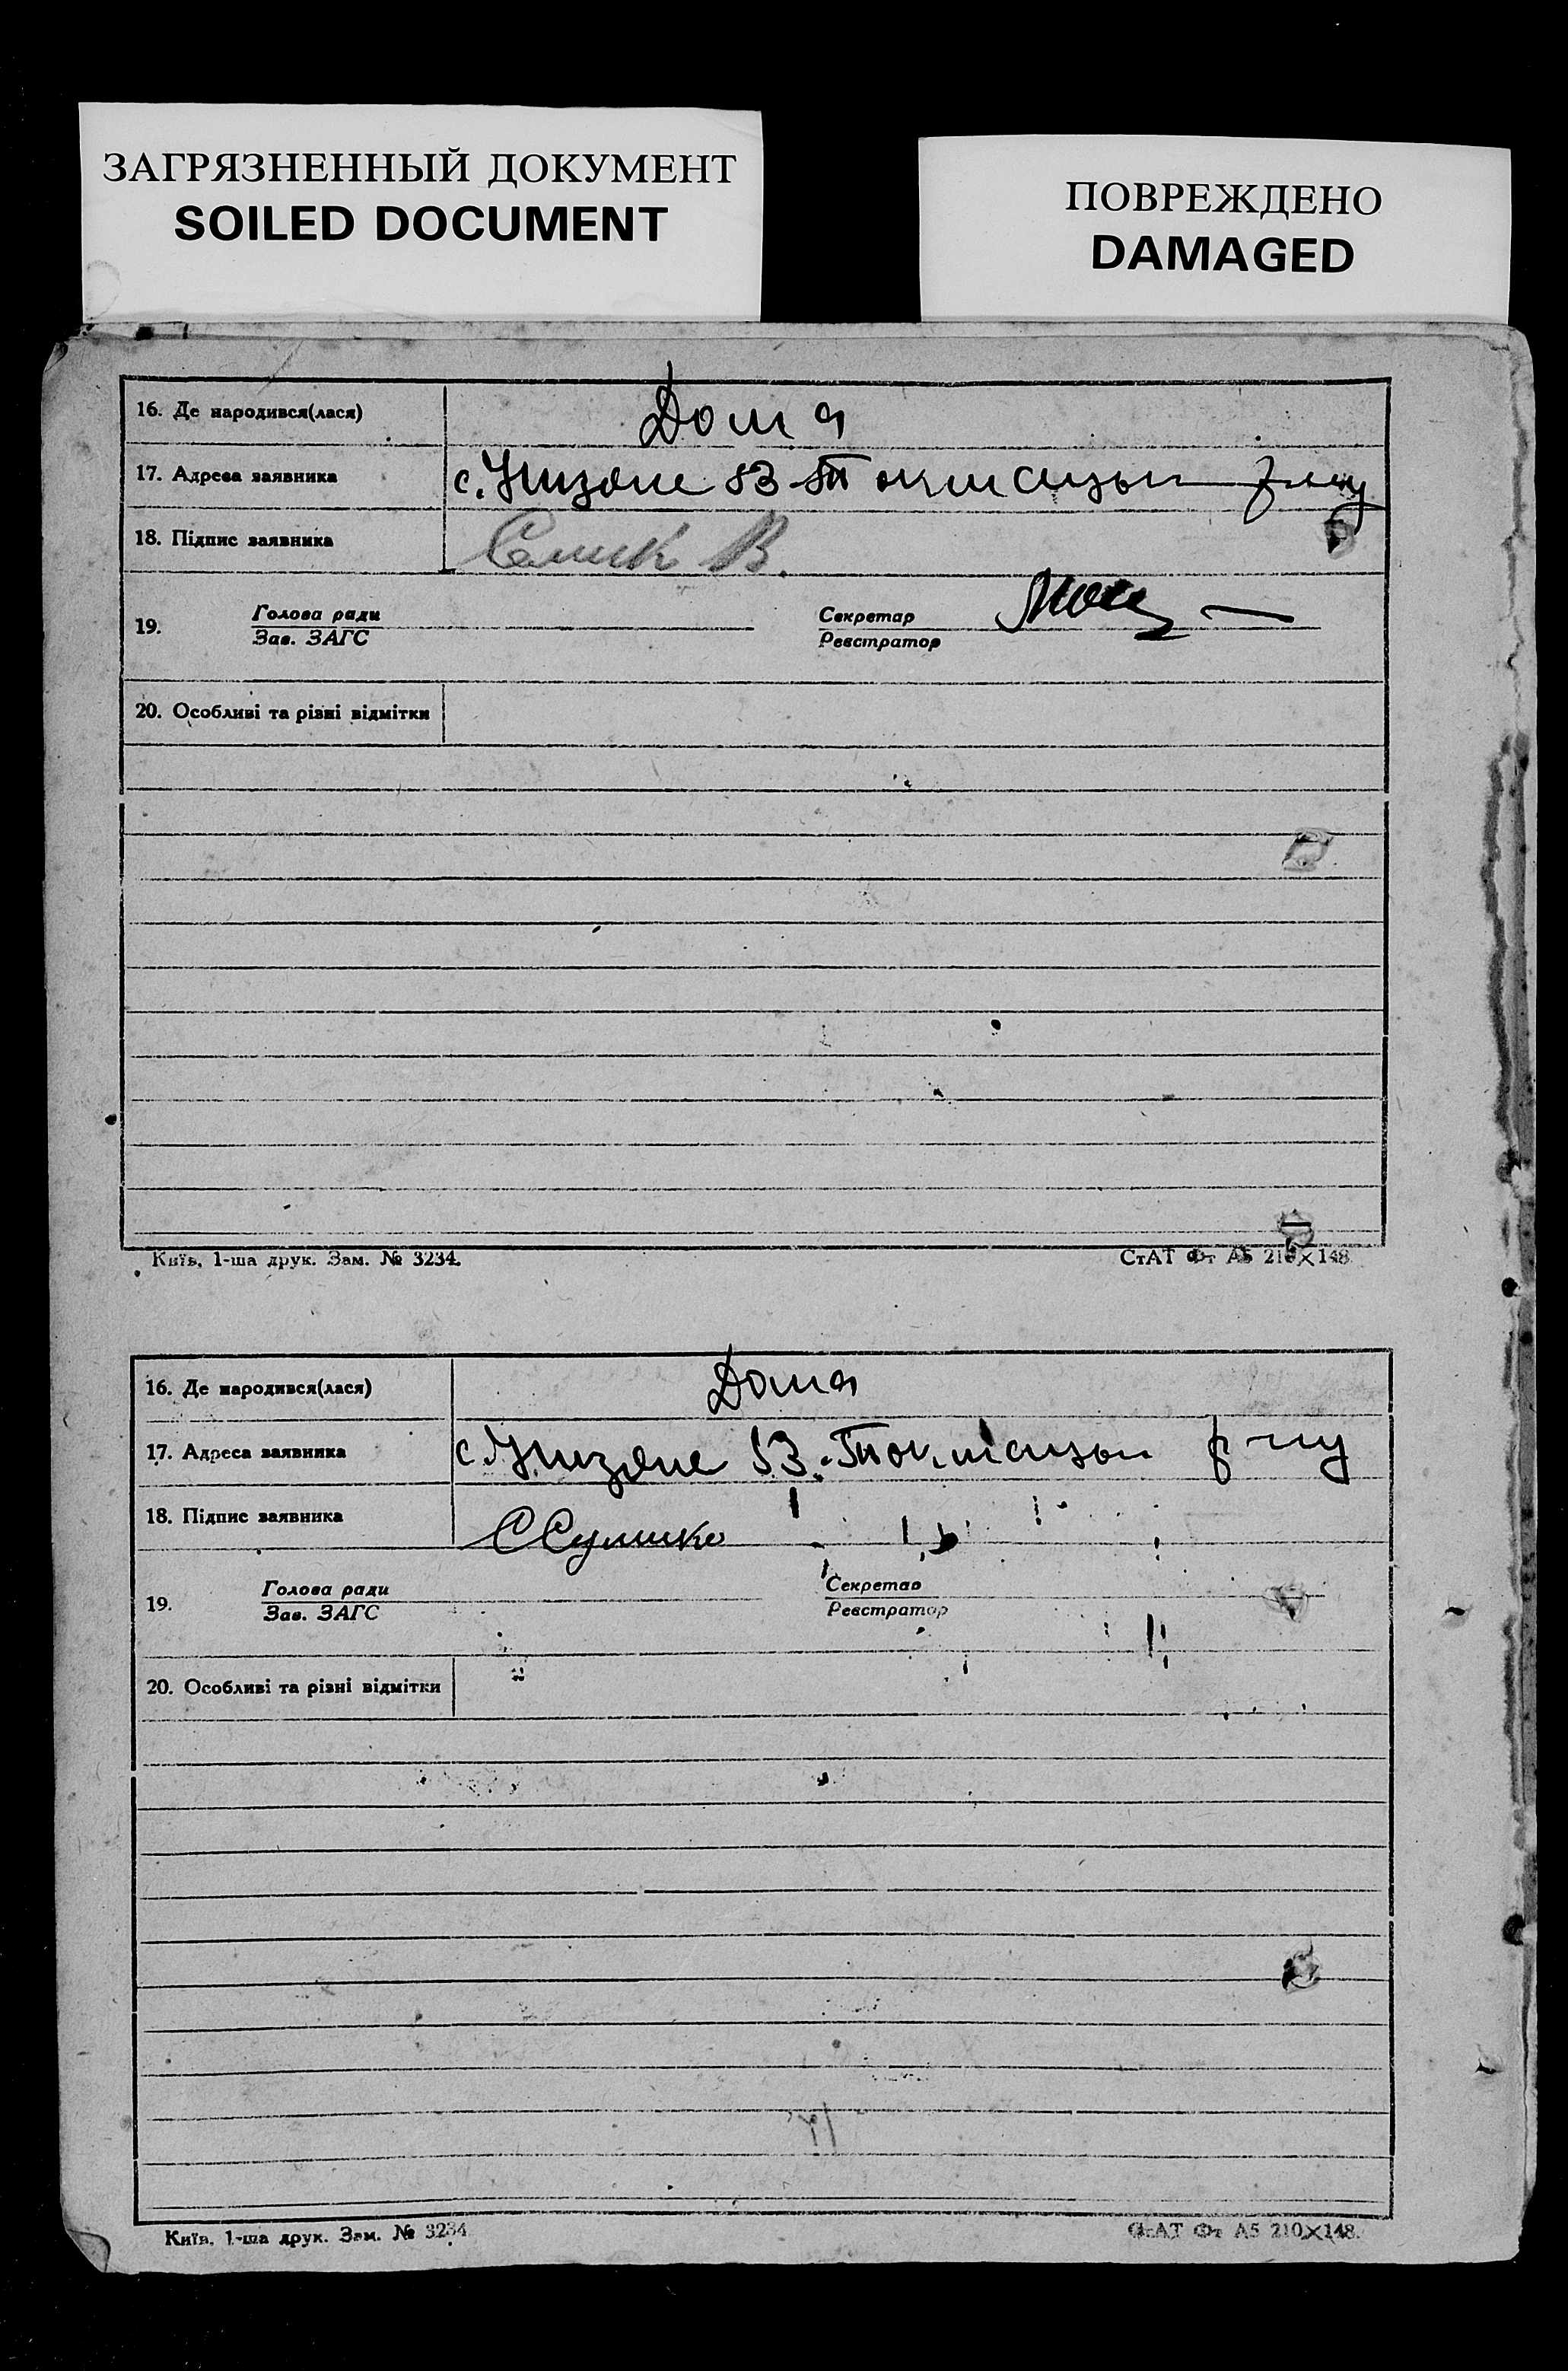 ЗАГРЯЗНЕННЫЙ ДОКУМЕНТ
SOILED DOCUMENT
ПОВРЕЖДЕНО
DAMAGED
16. Де народився(лася) Дома
17. Адреса заявника с.
18. Підпис заявника В.
19. Голова ради Секретар
Зав. ЗАГС Реєстратор
20. Особливі та різні відмітки
Київ, 1-ша друк. Зам. № 3234. СтАТ Фт А5 210×148
16. Де народився(лася) Дома
17. Адреса заявника с.
18. Підпис заявника
19. Голова ради Секретар
Зав. ЗАГС Реєстратор
20. Особливі та різні відмітки
Київ, 1-ша друк. Зам. № 3234 СтАТ Фт А5 210×148.